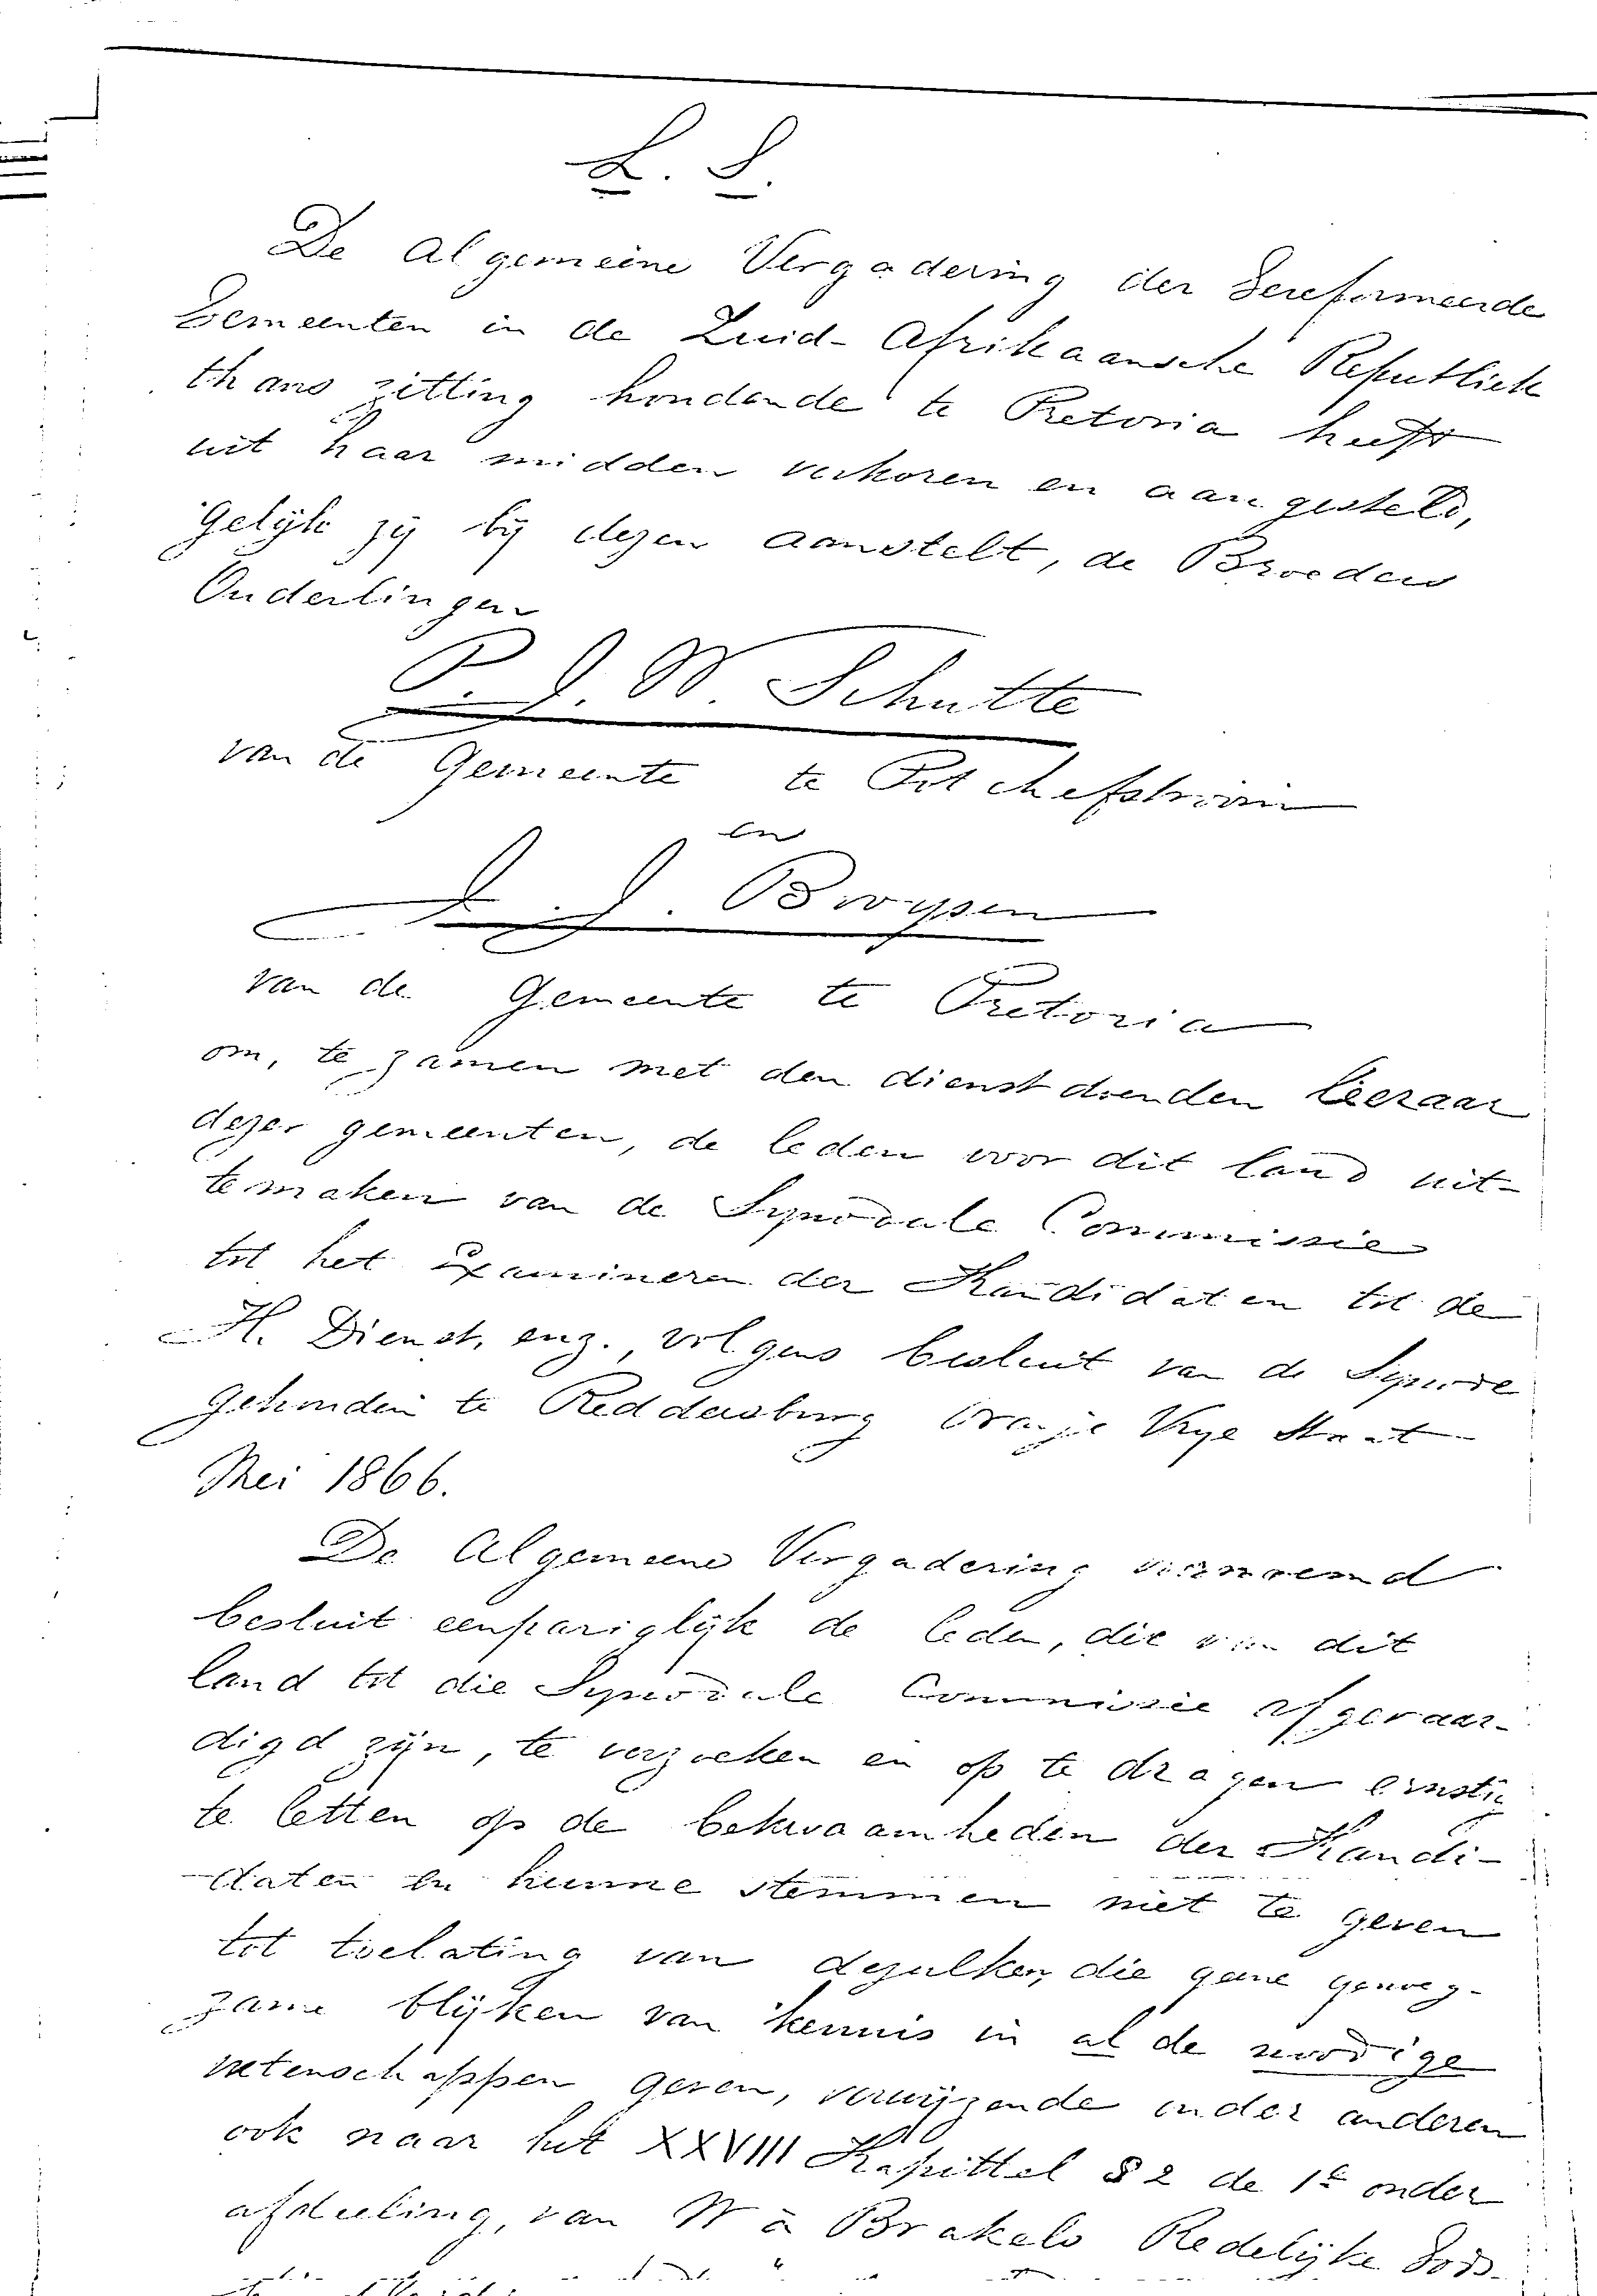 L. S.
De Algemeene Vergadering der Gereformeerde
Gemeenten in de Zuid-Afrikaansche Republiek
thans zitting houdende te Pretoria heeft
uit haar midden verkoren en aangesteld,
Gelijk zij bij dezen aanstelt, de Broeders
Ouderlingen
P. J. W. Schutte
van de Gemeente te Potchefstroom
en
J. J. Booysen
van de Gemeente te Pretoria
om, te zamen met den dienstdoenden Leeraar
dezer gemeenten, de leden voor dit land uit-
temaken van de Synodale Commissie
tot het Examineren der Kandidaten tot de
H. Dienst, enz., volgens besluit van de Synode
gehouden te Reddersburg Oranje Vrye Staat
Mei 1866.
De Algemeene Vergadering voornoemd
besluit eenpariglijk de leden, die van dit
land tot die Synodale Commissie afgevaar-
digd zijn, te verzoeken en op te dragen ernstig
te letten op de bekwaamheden der Kandi-
daten en hunne stemmen niet te geven
tot toelating van dezulken, die geene genoeg-
zame blijken van kennis in al de noodige
wetenschappen geven, verwijzende onder anderen
ook naar het XXVIII Kapittel § 2 de 1e onder
afdeeling, van W à Brakels Redelijke Gods-